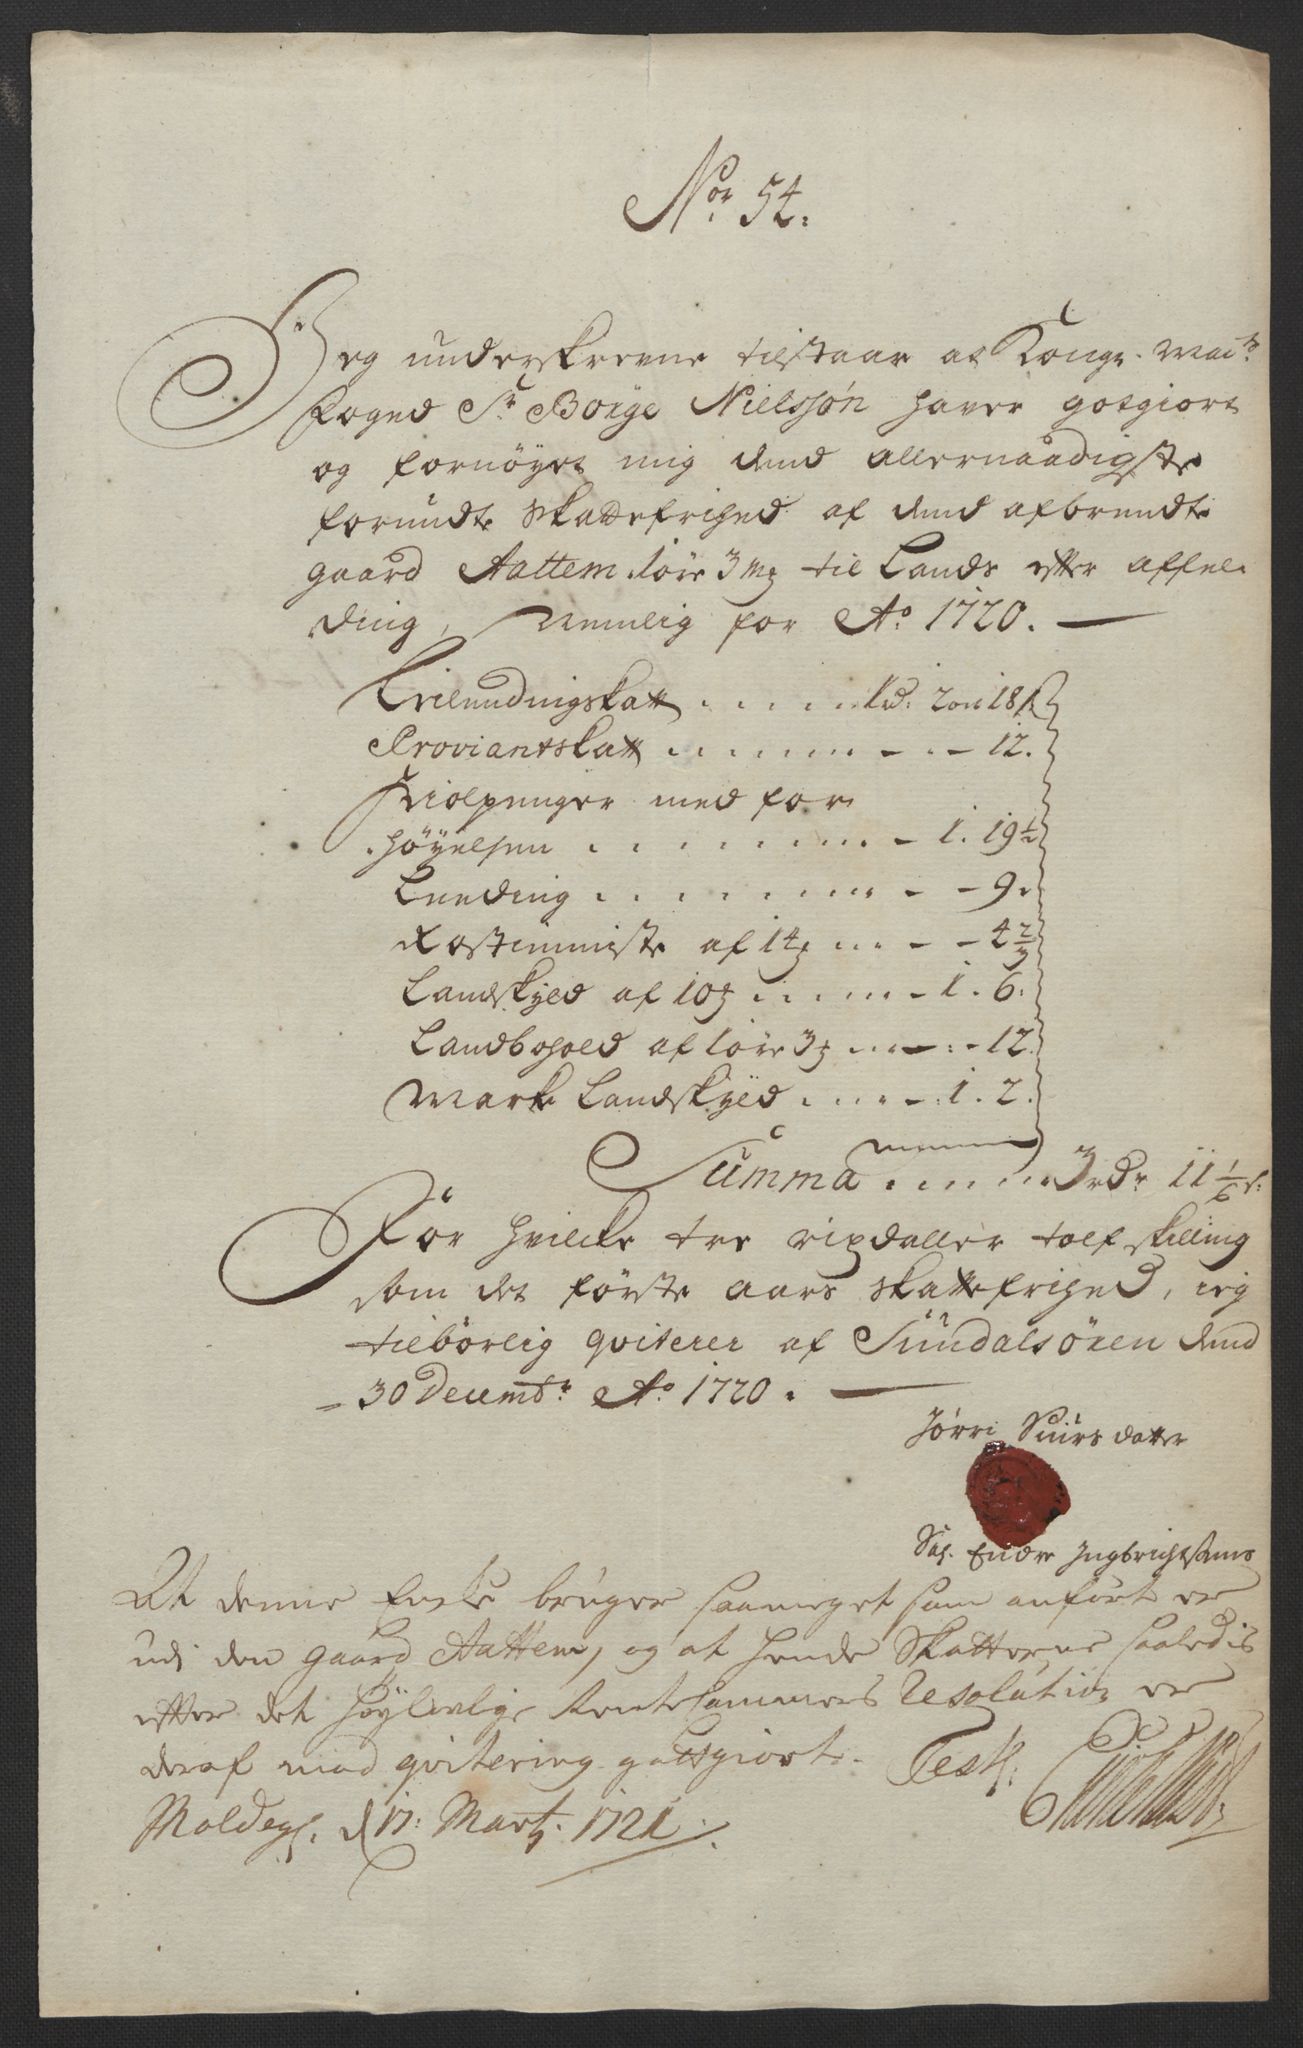 No: 54.
Jeg underskrevne tilstaar at Kongl. May:ts
Foged Sr Borge Nielssøn haver gotgiort
og fornöyet mig dend allernaadigste
forundte skattefrihed af dend afbrendte
gaard Aattem 1 öre 3 mg til Lands efter affel-
ding, Nemlig for Ao 1720.
Leilendingskatt . . . . . 1 rd: 2 ort 18 s
Proviantskatt . . . . . . - - - 12.
Skiolpenger med for
höyelsen . . . . . . . - 1. 19 1/2
Leeding . . . . . . . - - 9.
Rostienniste af 1 . . . - - 4 2/3
Landskyld af 10 . . . . . - 1. 6.
Landbohold af 1 öre 3 . . . - 12.
Mark Landskyld . . . . - 1. 2.
Summa . . . . . 3 rdr 11 1/6 s:
For hvilcke tre rixdaller tolf skilling
som det förste aars skattefrihed, ieg
tilbörlig qviterer af Sundalsören dend
30 Decembr Ao 1720.
Jörri Siursdatter
Sal. Endre Ingbrichtsøns
At denne Encke bruger saameget som anfört er
udi den gaard Aattem, og at hende Skatterne saaledis
efter det höylovlige Rentekammers Resolution er
deraf mod qvitering godtgiort.  Test:
Moldegd. d 17: Marty. 1721.